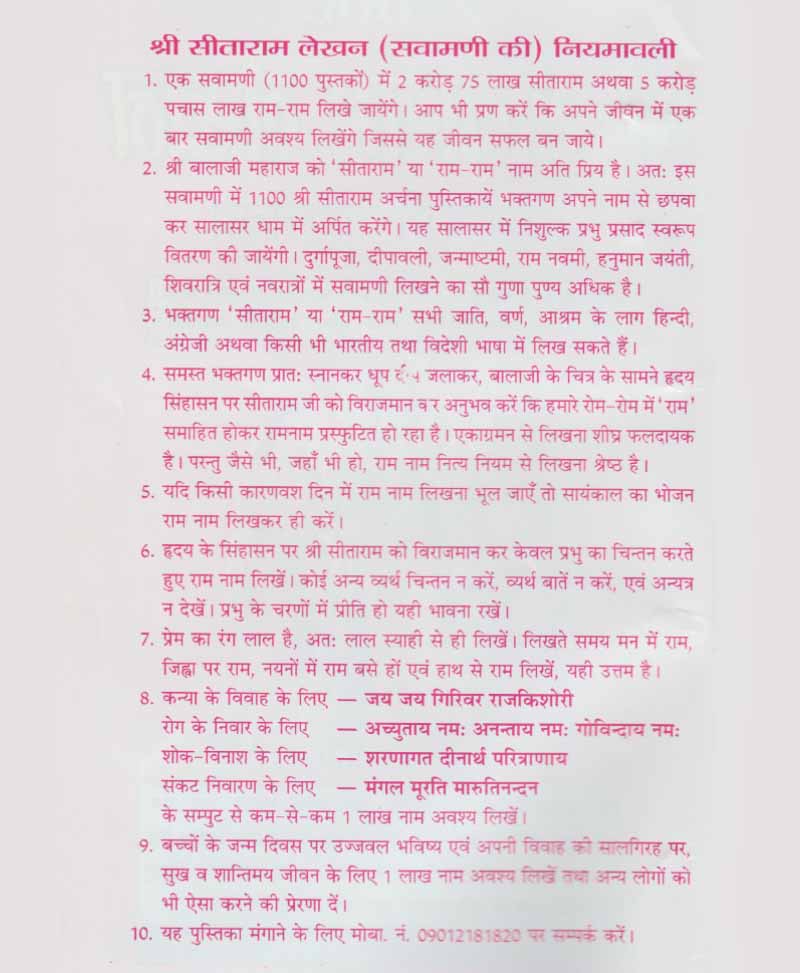 श्री सीताराम लेखन (सवामणी की) नियमावली
1. एक सवामणी (1100 पुस्तकों) में 2 करोड़ 75 लाख सीताराम अथवा 5 करोड़
पचास लाख राम-राम लिखे जायेंगे। आप भी प्रण करें कि अपने जीवन में एक
बार सवामणी अवश्य लिखेंगे जिससे यह जीवन सफल बन जाये।
2. श्री बालाजी महाराज को 'सीताराम' या 'राम-राम' नाम अति प्रिय है। अतः इस
सवामणी में 1100 श्री सीताराम अर्चना पुस्तिकायें भक्तगण अपने नाम से छपवा
कर सालासर धाम में अर्पित करेंगे। यह सालासर में निशुल्क प्रभु प्रसाद स्वरूप
वितरण की जायेंगी। दुर्गापूजा, दीपावली, जन्माष्टमी, राम नवमी, हनुमान जयंती,
शिवरात्रि एवं नवरात्रों में सवामणी लिखने का सौ गुणा पुण्य अधिक है।
3. भक्तगण 'सीताराम' या 'राम-राम' सभी जाति, वर्ण, आश्रम के लाग हिन्दी,
अंग्रेजी अथवा किसी भी भारतीय तथा विदेशी भाषा में लिख सकते हैं।
4. समस्त भक्तगण प्रातः स्नानकर धूप जलाकर, बालाजी के चित्र के सामने हृदय
सिंहासन पर सीताराम जी को विराजमान कर अनुभव करें कि हमारे रोम-रोम में 'राम'
समाहित होकर रामनाम प्रस्फुटित हो रहा है। एकाग्रमन से लिखना शीघ्र फलदायक
है। परन्तु जैसे भी, जहाँ भी हो, राम नाम नित्य नियम से लिखना श्रेष्ठ है।
5. यदि किसी कारणवश दिन में राम नाम लिखना भूल जाएँ तो सायंकाल का भोजन
राम नाम लिखकर ही करें।
6. हृदय के सिंहासन पर श्री सीताराम को विराजमान कर केवल प्रभु का चिन्तन करते
हुए राम नाम लिखें। कोई अन्य व्यर्थ चिन्तन न करें, व्यर्थ बातें न करें, एवं अन्यत्र
न देखें। प्रभु के चरणों में प्रीति हो यही भावना रखें।
7. प्रेम का रंग लाल है, अतः लाल स्याही से ही लिखें। लिखते समय मन में राम,
जिह्वा पर राम, नयनों में राम बसे हों एवं हाथ से राम लिखें, यही उत्तम है।
8. कन्या के विवाह के लिए — जय जय गिरिवर राजकिशोरी
रोग के निवार के लिए — अच्युताय नमः अनन्ताय नमः गोविन्दाय नमः
शोक-विनाश के लिए — शरणागत दीनार्थ परित्राणाय
संकट निवारण के लिए — मंगल मूरति मारुतिनन्दन
के सम्पुट से कम-से-कम 1 लाख नाम अवश्य लिखें।
9. बच्चों के जन्म दिवस पर उज्जवल भविष्य एवं अपनी विवाह की सालगिरह पर,
सुख व शान्तिमय जीवन के लिए 1 लाख नाम अवश्य लिखें तथा अन्य लोगों को
भी ऐसा करने की प्रेरणा दें।
10. यह पुस्तिका मंगाने के लिए मोबा. नं. 09012181820 पर सम्पर्क करें।